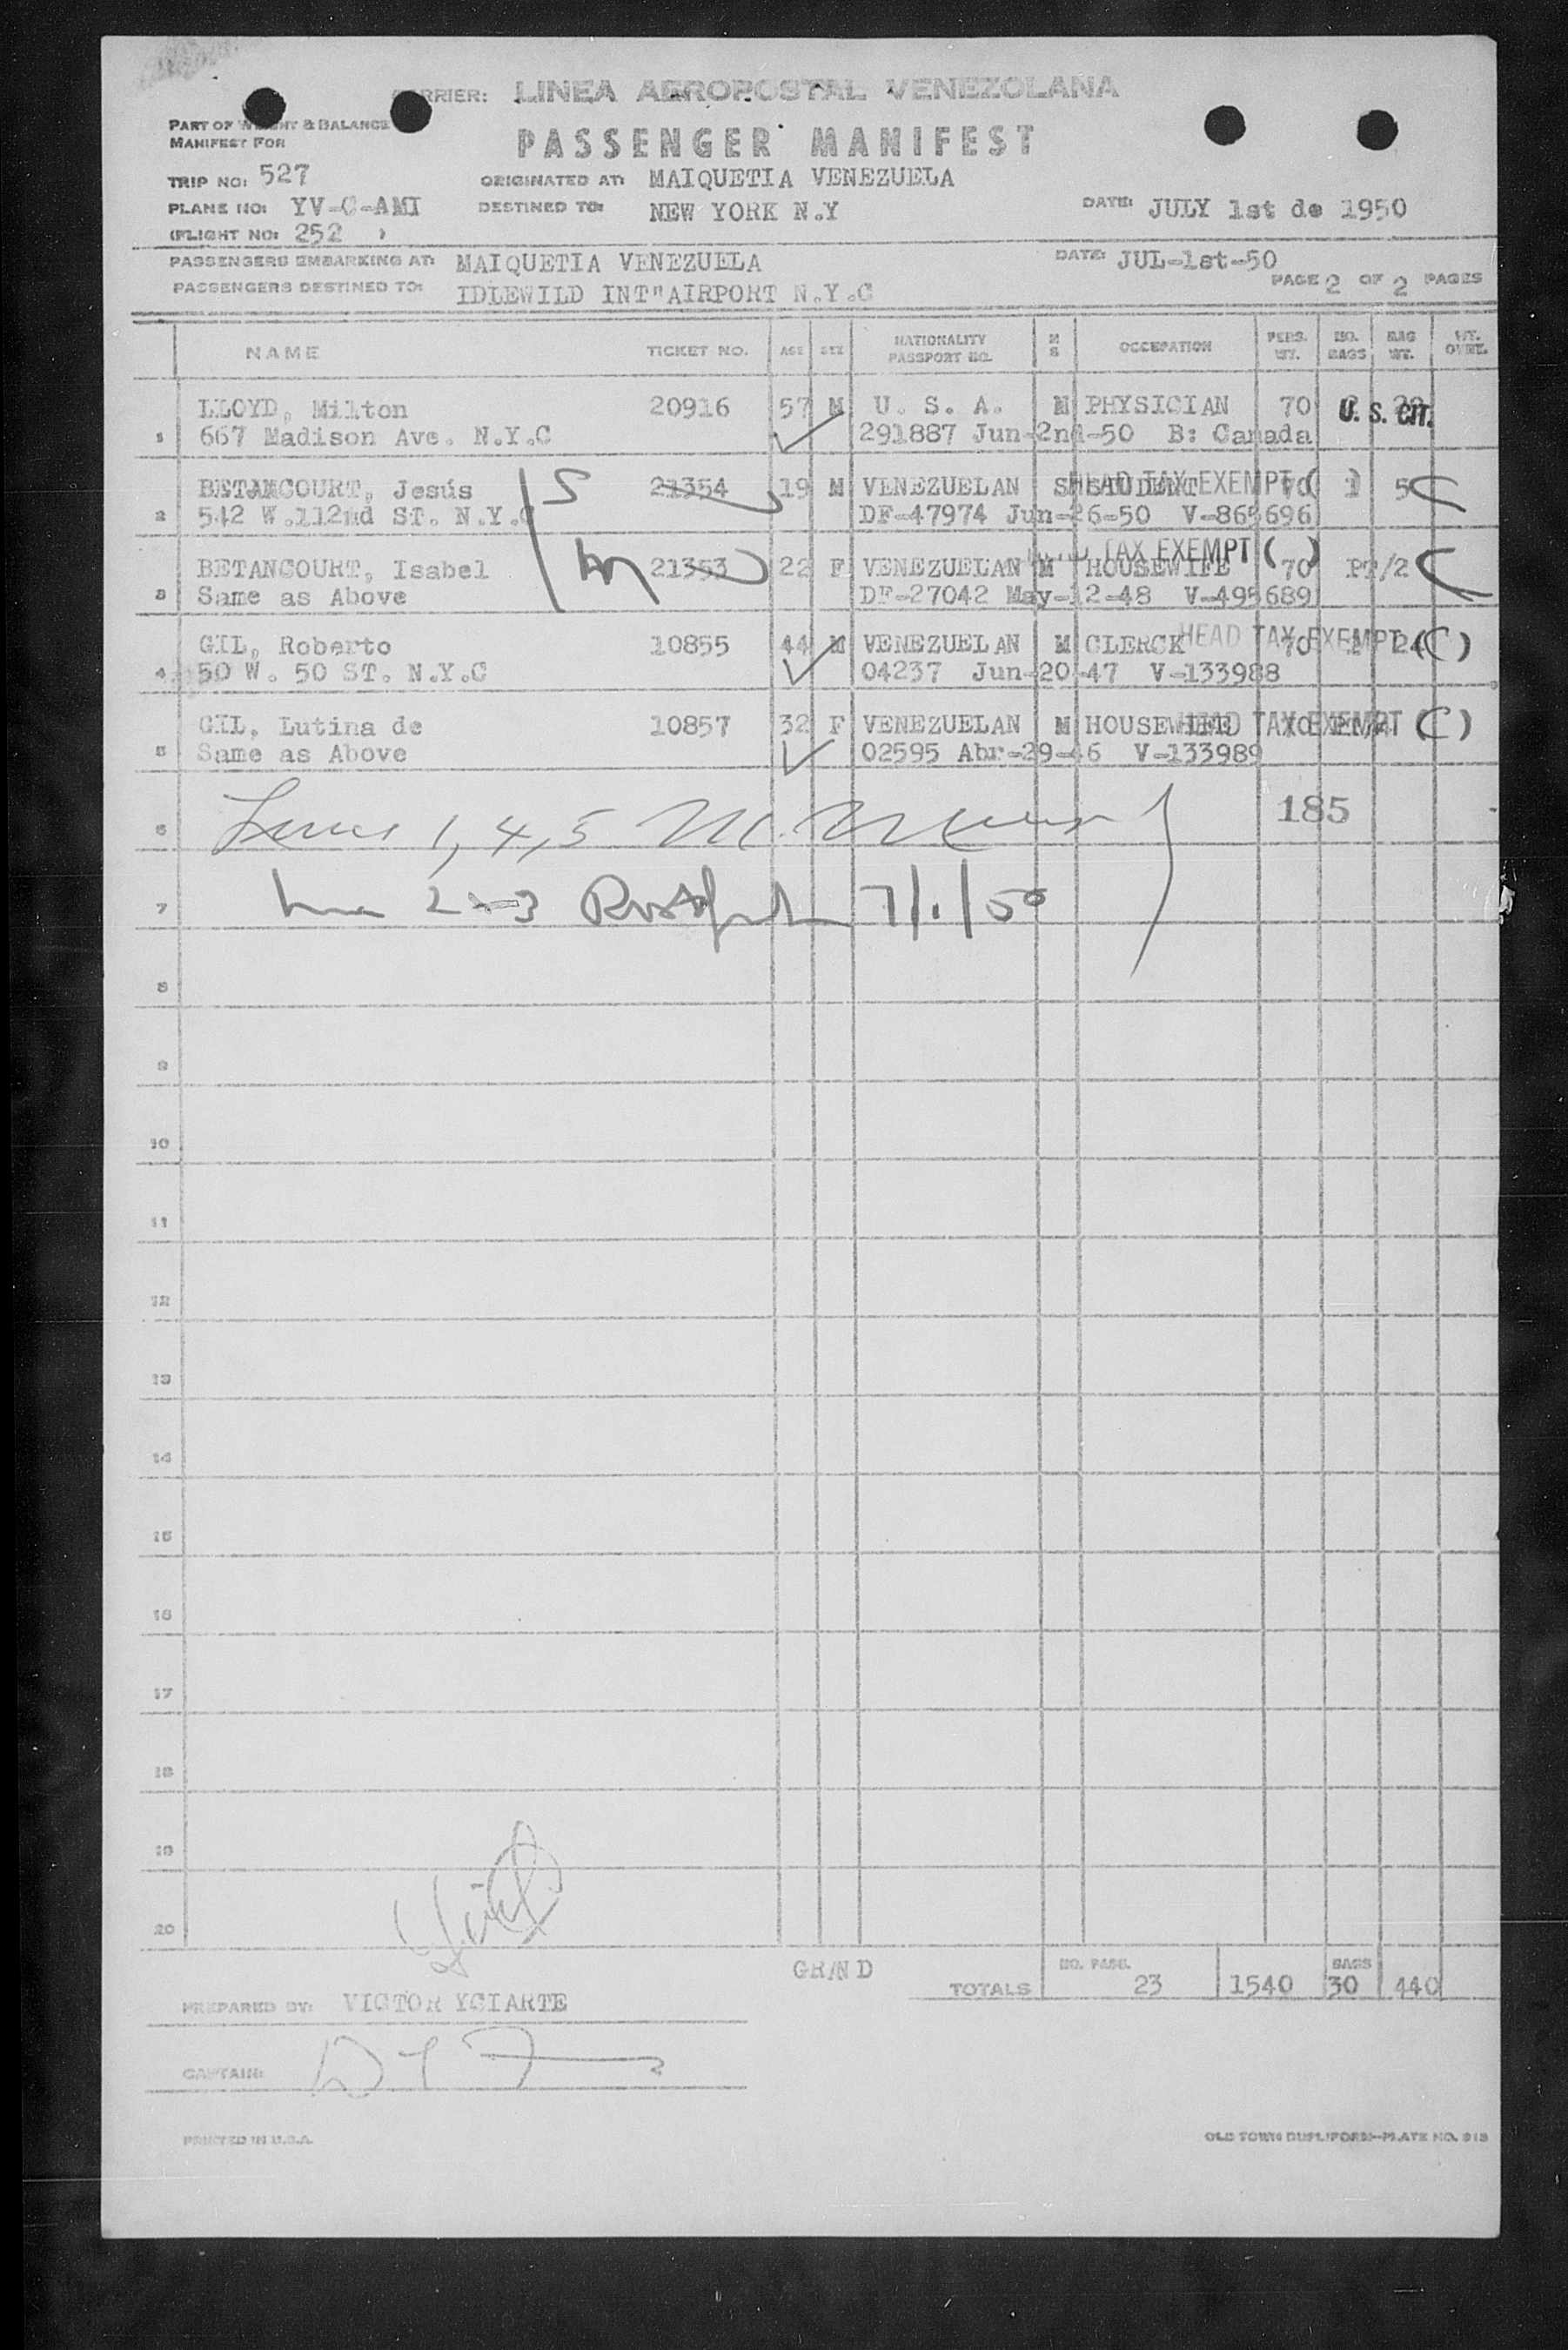 CARRIER: LINEA AEROPOSTAL VENEZOLANA
PART OF WEIGHT & BALANCE
MANIFEST FOR
PASSENGER MANIFEST
TRIP NO: 527 ORIGINATED AT: MAIQUETIA VENEZUELA
PLANE NO: YV-C-AMI DESTINED TO: NEW YORK N.Y DATE: JULY 1st de 1950
(FLIGHT NO: 252 )
PASSENGERS EMBARKING AT: MAIQUETIA VENEZUELA DATE: JUL-1st-50
PASSENGERS DESTINED TO: IDLEWILD INT"AIRPORT N.Y.C PAGE 2 OF 2 PAGES
NAME TICKET NO. AGE SEX NATIONALITY PASSPORT NO. M S OCCUPATION PERS. WT. NO. BAGS BAG WT. WT. OVER.
LLOYD, Milton 20916 57 M U. S. A. M PHYSICIAN 70 U. S. CIT.
1 667 Madison Ave. N.Y.C 291887 Jun-2nd-50 B: Canada
BETANCOURT, Jesús S 21354 19 M VENEZUELAN S STUDENT HEAD TAX EXEMPT ( ) 70 1 5
2 542 W.112nd ST. N.Y.C DF-47974 Jun-26-50 V-865696
BETANCOURT, Isabel M 21353 22 F VENEZUELAN M HOUSEWIFE HEAD TAX EXEMPT ( ) 70 PP/2
3 Same as Above DF-27042 May-12-48 V-495689
GIL, Roberto 10855 44 M VENEZUELAN M CLERCK HEAD TAX EXEMPT (C) 70 24
4 50 W. 50 ST. N.Y.C 04237 Jun-20-47 V-133988
GIL, Lutina de 10857 32 F VENEZUELAN M HOUSEWIFE HEAD TAX EXEMPT (C) 70
5 Same as Above 02595 Abr-29-46 V-133989
6 Lines 1, 4, 5 185
7 Line 2-3 7/1/50
8
9
10
11
12
13
14
15
16
17
18
19
20
GRAND TOTALS NO. PASS. 23 1540 BAGS 30 440
PREPARED BY: VICTOR YCIARTE
CAPTAIN:
PRINTED IN U.S.A. OLD TOWN DUPLIFORM-PLATE NO. 913